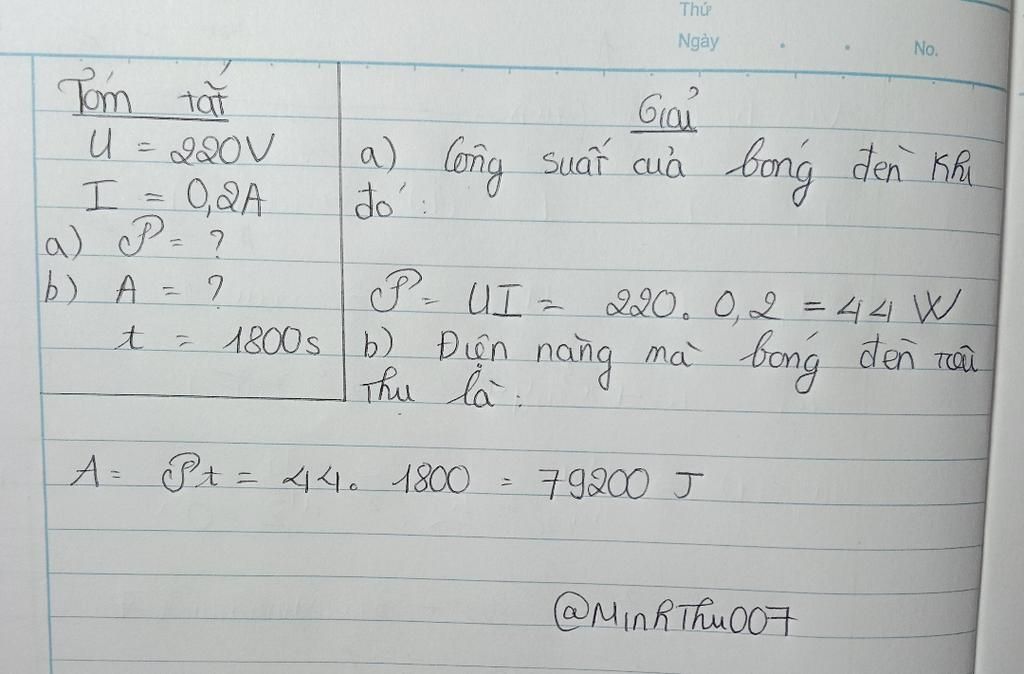 Thứ
Ngày . . No.
Tóm tắt
U = 220V
I = 0,2A
a) P = ?
b) A = ?
t = 1800s
Giải
a) Công suất của bóng đèn khi
đó :
P = UI = 220. 0,2 = 44 W
b) Điện năng mà bóng đèn tiêu
thu là :
A = Pt = 44. 1800 = 79200 J
@MinhThu007